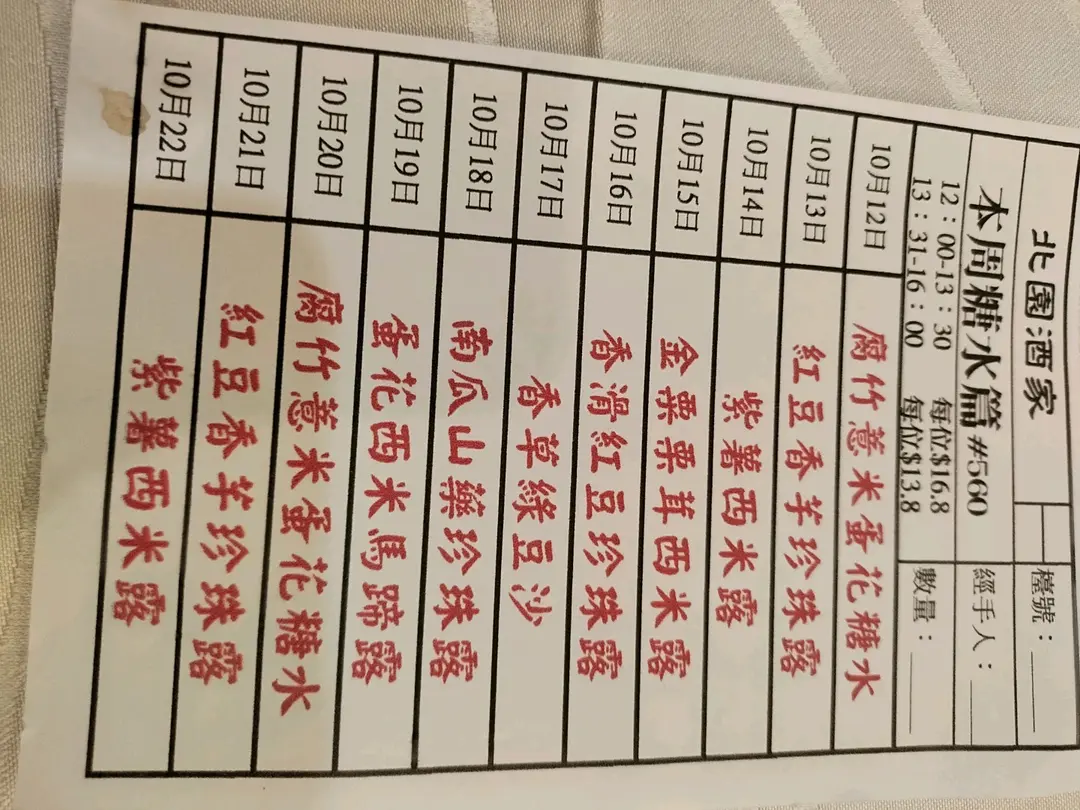 北園酒家
檯號：
本周糖水篇 #5560
經手人：
12：00-13：30 每位$16.8
13：31-16：00 每位$13.8
數量：
10月12日 腐竹薏米蛋花糖水
10月13日 紅豆香芋珍珠露
10月14日 紫薯西米露
10月15日 金粟粟茸西米露
10月16日 香滑紅豆珍珠露
10月17日 香草綠豆沙
10月18日 南瓜山藥珍珠露
10月19日 蛋花西米馬蹄露
10月20日 腐竹薏米蛋花糖水
10月21日 紅豆香芋珍珠露
10月22日 紫薯西米露